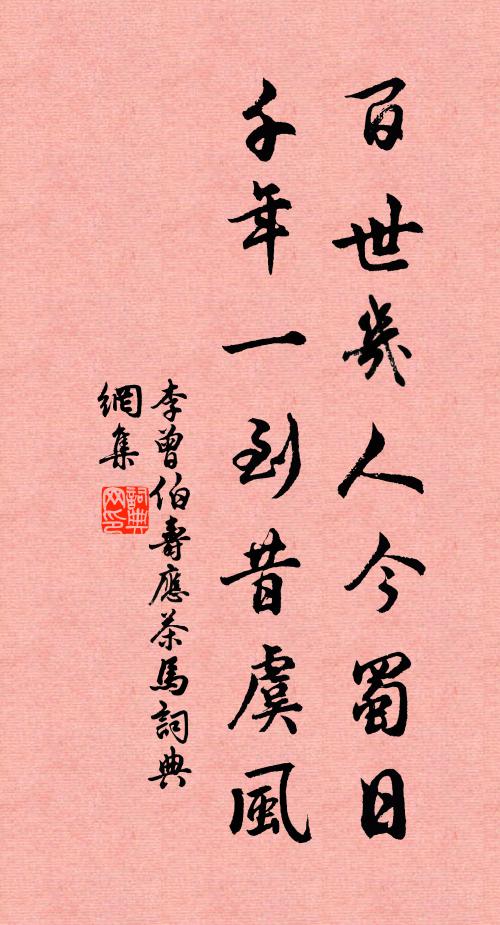 百世幾人今蜀日
千年一到昔虞風
李曾伯壽應茶馬詞典
網集
詞典
网印